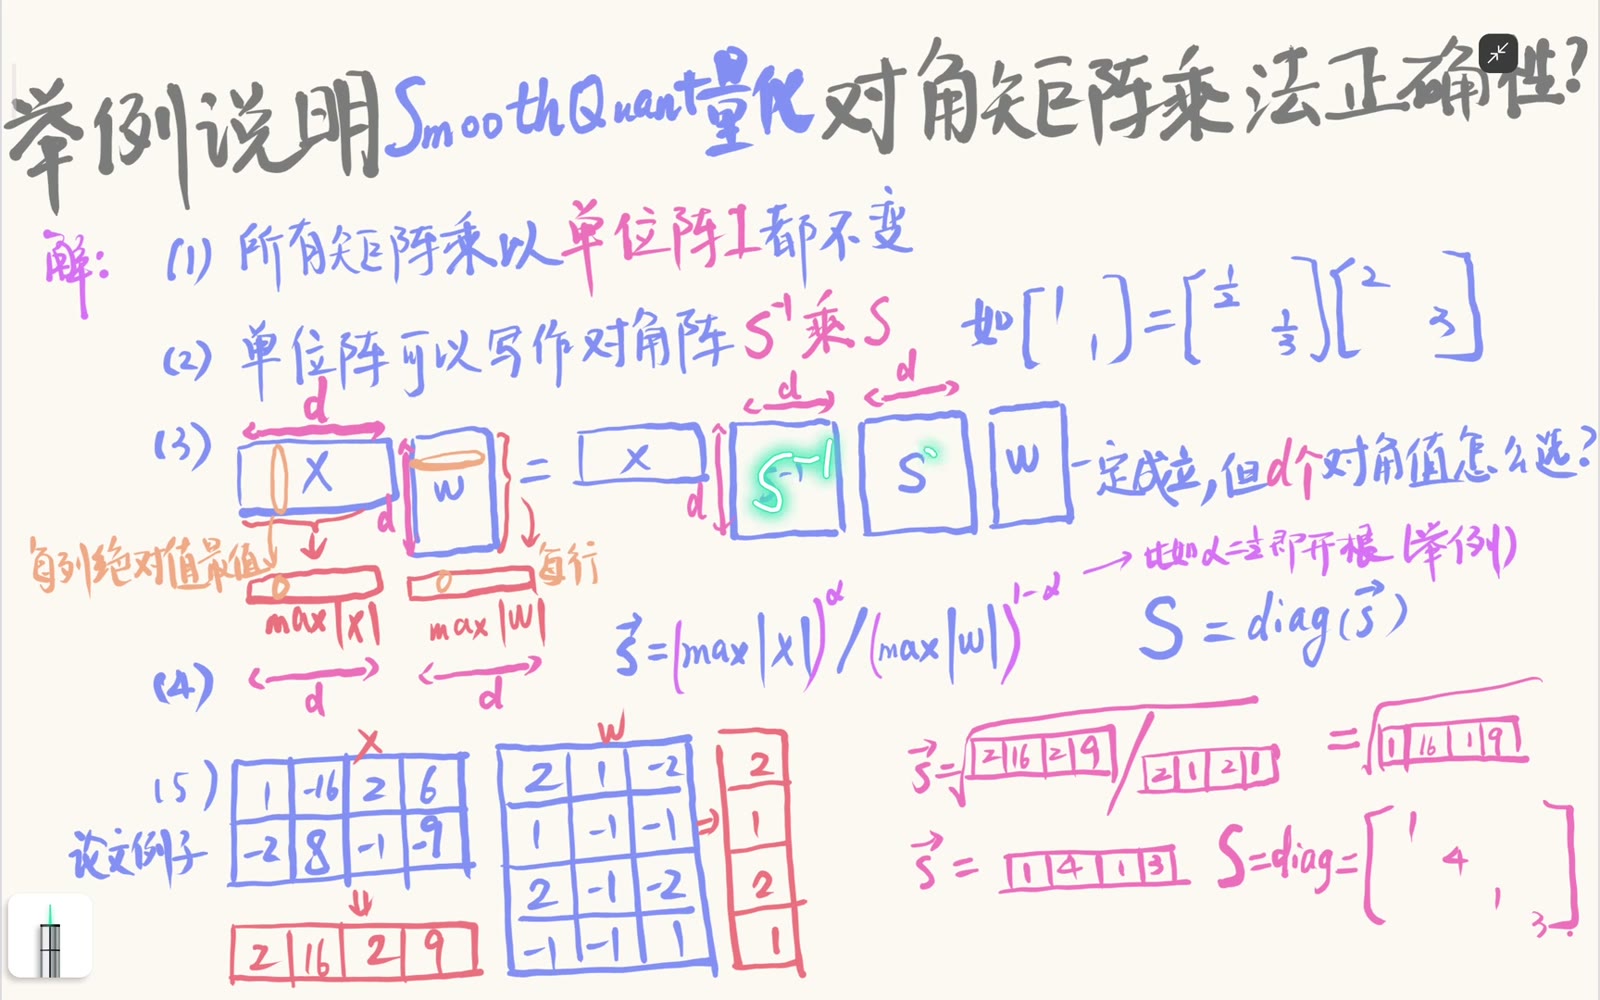 举例说明SmoothQuant量化对角矩阵乘法正确性?
解: (1) 所有矩阵乘以单位阵I都不变
(2) 单位阵可以写作对角阵 S⁻¹乘S 如[1 1]=[1/2 1/3][2 3]
d d d
(3) X W = X S⁻¹ S W 一定成立,但d个对角值怎么选?
d d
每列绝对值最值 每行
max|X| max|W|
→ 比如α=½即开根(举例)
(4) s⃗=(max|X|)^α/(max|W|)^1-α S=diag(s⃗)
d d
X W
(5) 1 -16 2 6
-2 8 -1 -9
论文例子
⇓
2 16 2 9
2 1 -2
1 -1 -1
2 -1 -2
-1 -1 1
⇒
2
1
2
1
s⃗=√2 16 2 9 / 2 1 2 1 = √1 16 1 9
s⃗= 1 4 1 3 S=diag=[1 4 1 3]